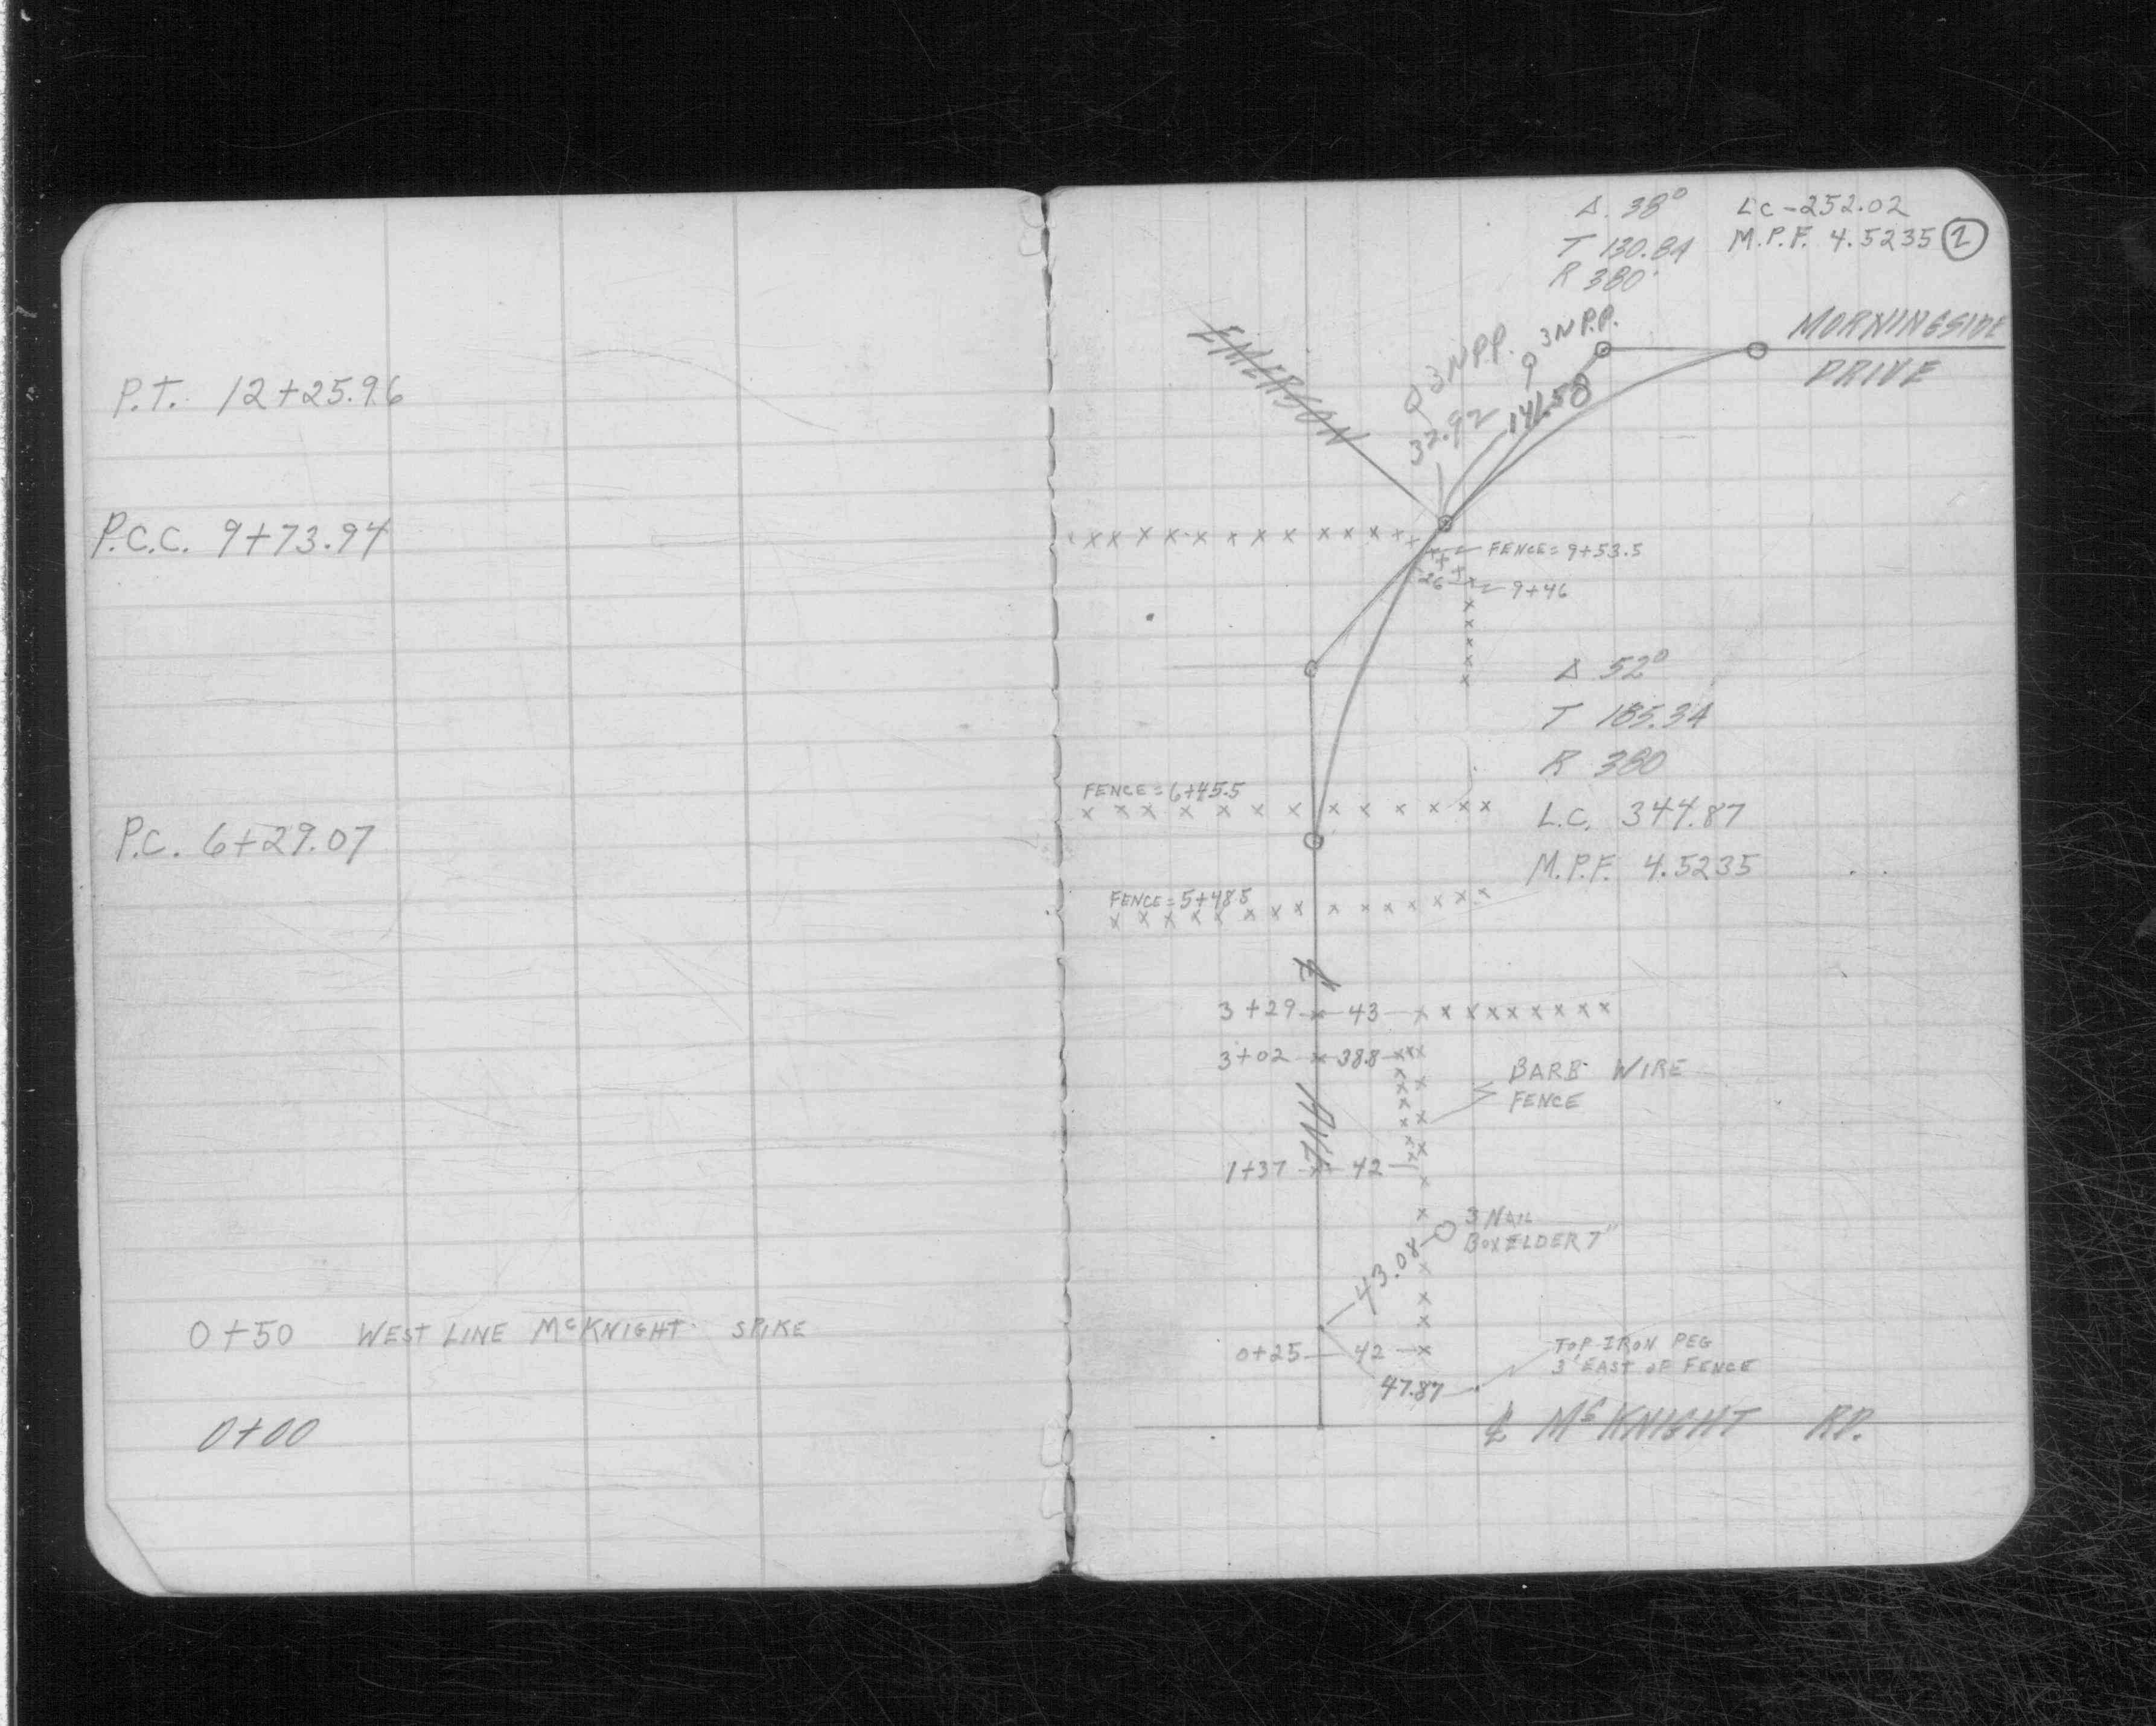 P.T. 12+25.96
P.C.C. 9+73.94
P.C. 6+29.07
0+50 WEST LINE McKNIGHT SPIKE
0+00
Δ. 38° LC-252.02
T 130.84 M.P.F. 4.5235 1
R 380'
MORNINGSIDE
DRIVE
EMERSON
3NPP.
3NP.P.
32.92
141.58
FENCE=9+53.5
26 9+46
Δ 52°
T 185.34
R 380
L.C. 344.87
M.P.F. 4.5235
FENCE=6+45.5
FENCE=5+48.5
3+29 43
3+02 38.8
BARB WIRE
FENCE
1+37 42
3 NAIL
BOXELDER 7"
43.08
0+25 42
TOP IRON PEG
3' EAST OF FENCE
47.87
℄ McKNIGHT RD.